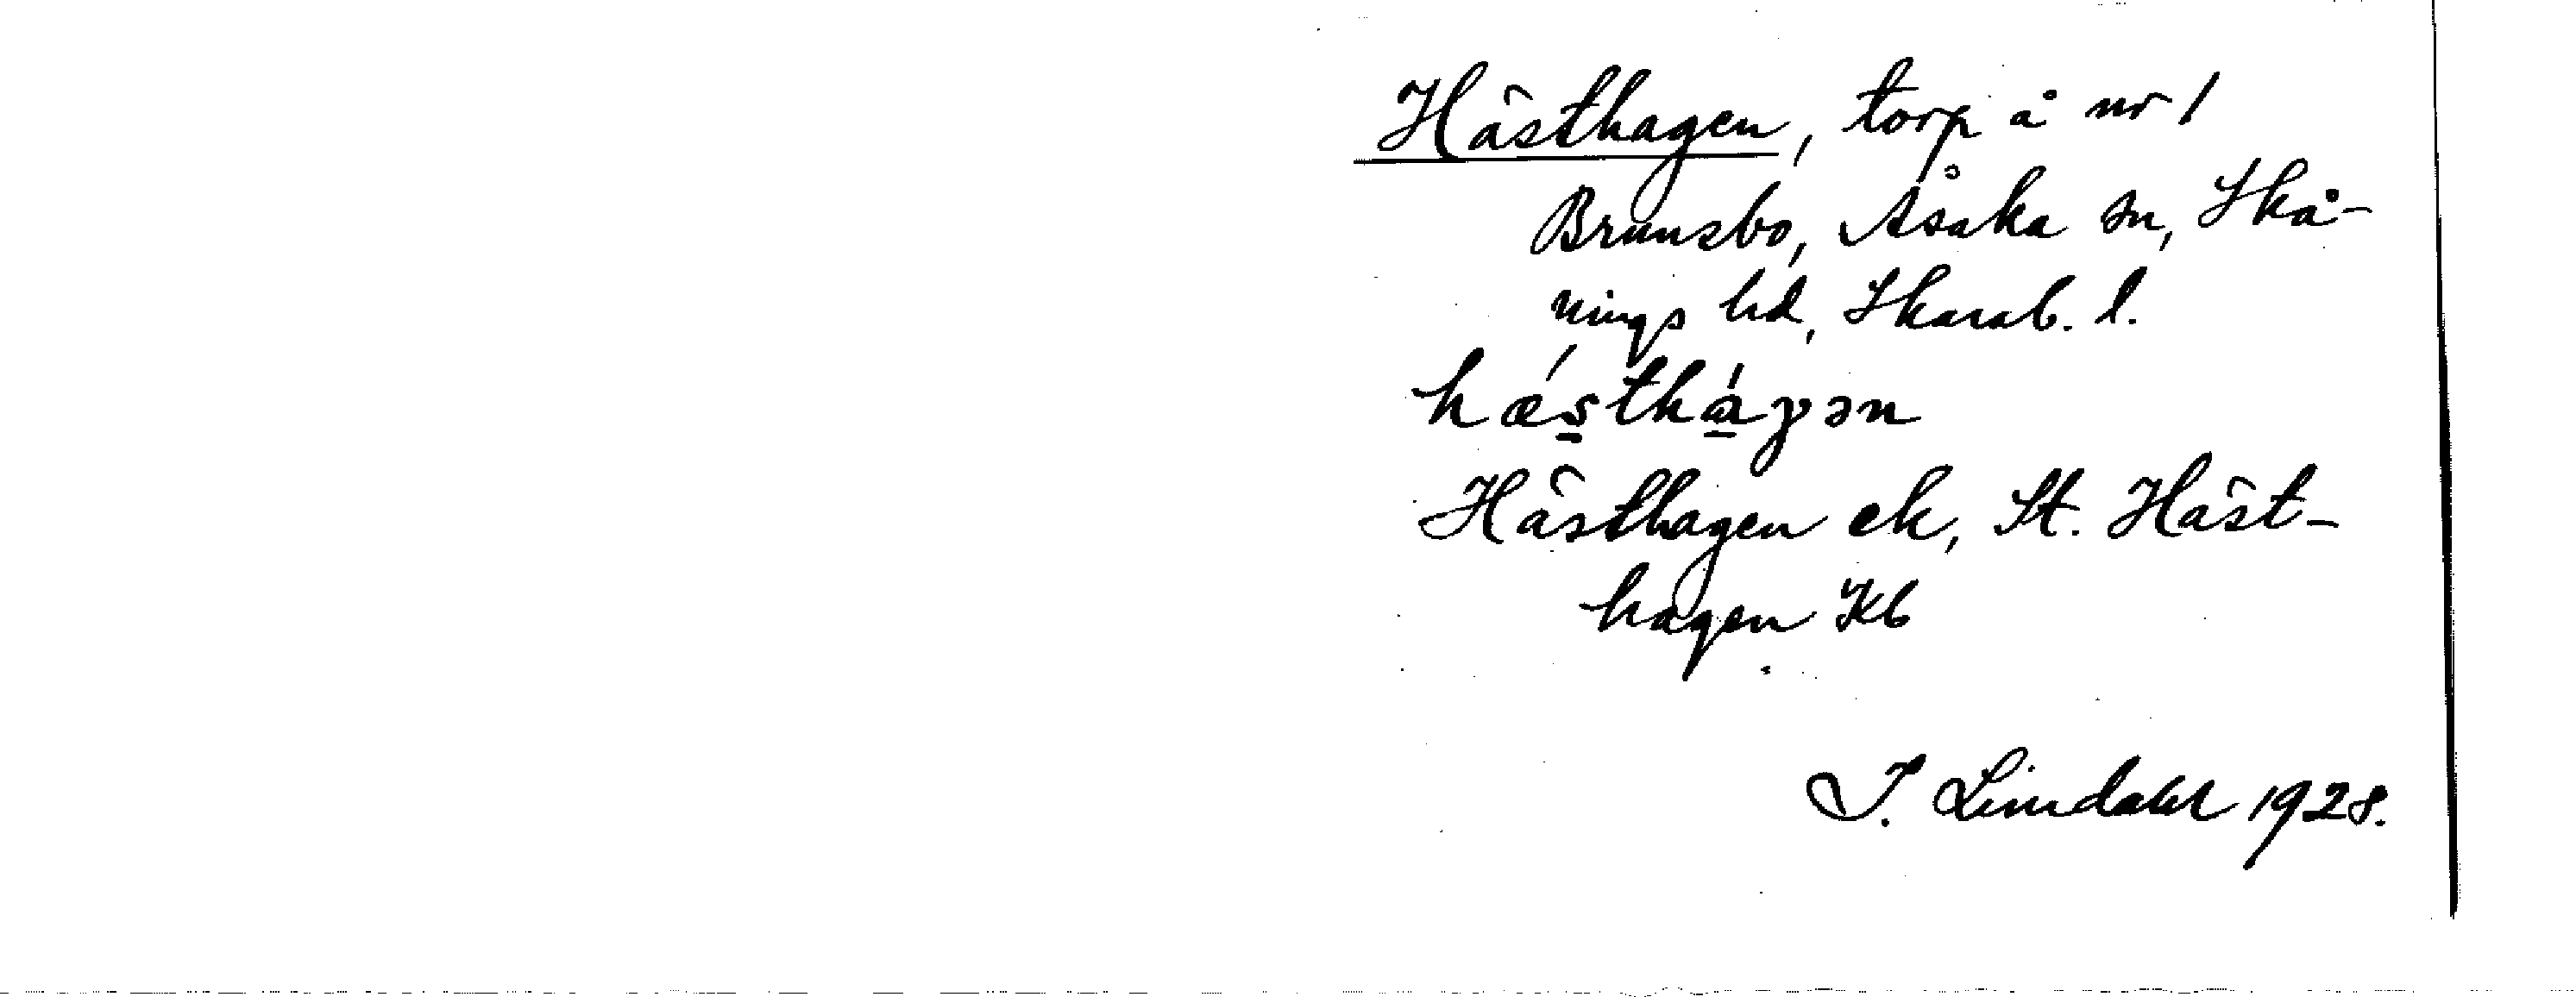 Hästhagen, torp å nr 1
Brunsbo, Åsaka sn, Skå-
nings hd, Skarab. l.
hǽs̱thá̱γən
Hästhagen ek, St. Häst-
hagen Kb
I. Lindahl 1928.